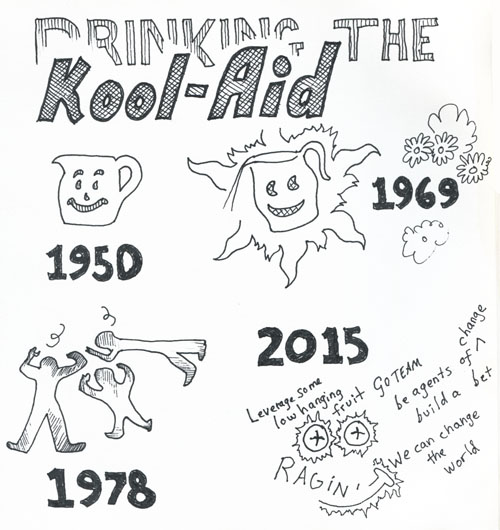 DRINKING THE
Kool-Aid
1950
1969
1978
2015
Leverage some
low hanging
fruit
GO TEAM
be agents of ^ change
build a bet
We can change
the
world
RAGIN'